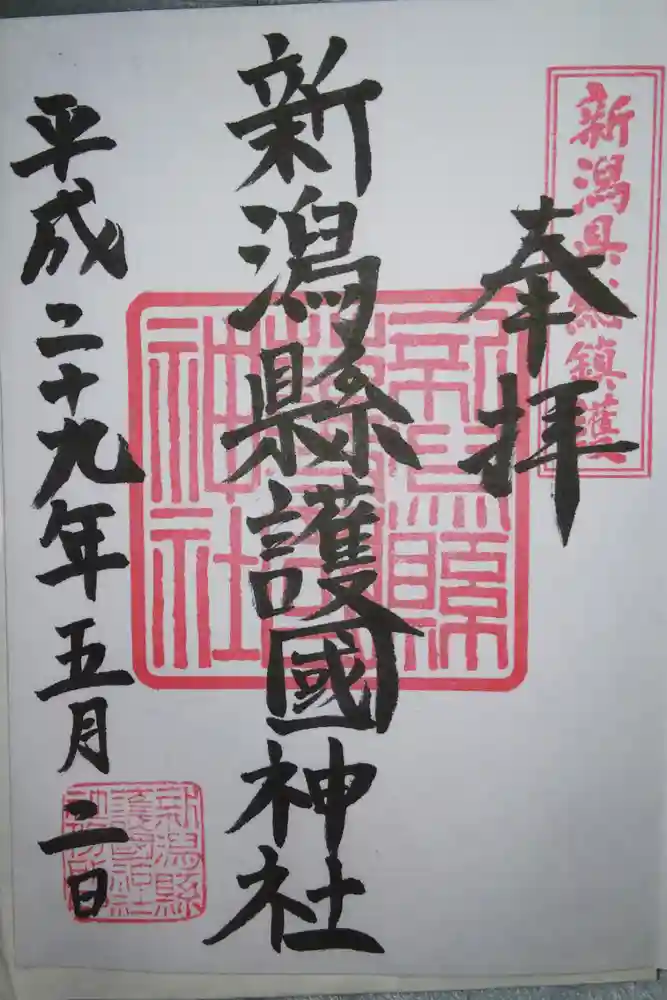 新潟県総鎮護
奉拝
新潟縣護國神社
新潟縣
護國
神社
平成二十九年五月二日
新潟縣
護國神社
社務所